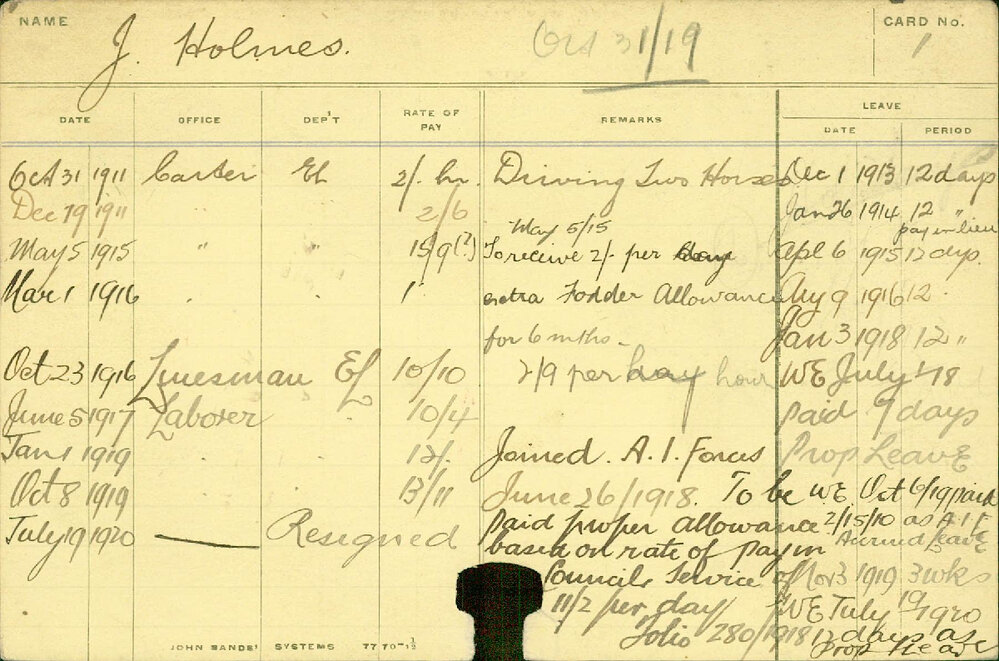 NAME J. Holmes. Oct 31/19 CARD No. 1
DATE OFFICE DEP'T RATE OF PAY REMARKS LEAVE
DATE PERIOD
Oct 31 1911 Carter El 2/- hr. Driving Two Horses Dec 1 1913 12 days
Dec 19 1911 2/6 Jan 26 1914 12 "
May 5/15 pay in lieu
May 5 1915 " " 15/9(?) To receive 2/- per day Apl 6 1915 12 dys.
Mar 1 1916 extra Fodder Allowance Aug 9 1916 12
for 6 mths. Jan 3 1918 12 "
Oct 23 1916 Linesman El 10/10 2/9 per day hour WE July 1/18
June 5 1917 Laborer " 10/4 paid 7 days
Jan 1 1919 12/- Joined A. I. Forces Prop Leave
Oct 8 1919 13/11 June 26/1918. To be WE Oct 6/19 paid
July 19 1920 Resigned paid proper allowance 2/15/10 as A I F
based on rate of pay in Accrued Leave
Councils Service of Nov 3 1919 3 wks
11/2 per day WE July 19 1920
folio 280/1918 12 days as
Prop Leave
JOHN SANDS' SYSTEMS 7770-1½